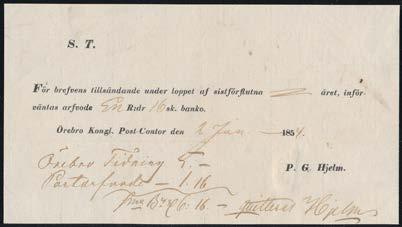 S. T.
För brefvens tillsändande under loppet af sistförflutna året, inför-
väntas arfvode En R:dr 16 sk. banko.
Örebro Kongl. Post-Contor den 2 Jan. 1854.
Örebro Tidning 5. –
P. G. Hjelm.
Portarfvode – 1. 16
6: 16 – quitteras Hjelm